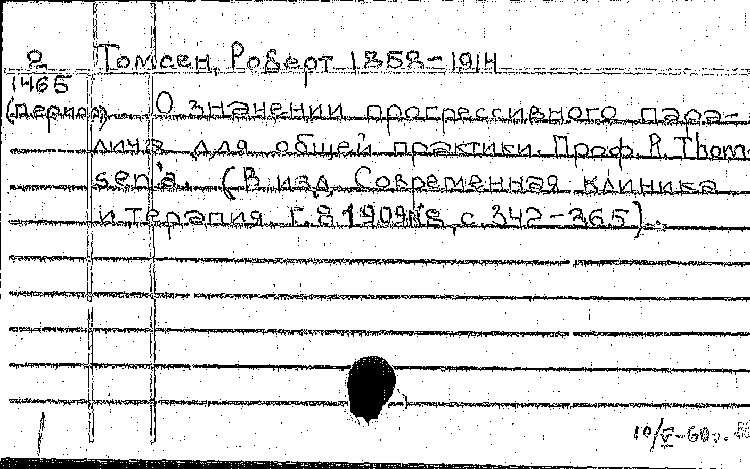 2 Томсен, Роберт 1858-1914
1465
(период) О значении прогрессивного пара-
лича для общей практики. Проф. R. Thom-
sen'a. (В изд. Современная клиника
и терапия г. 8 1909 №8, с. 342-365).
10/V-60г.